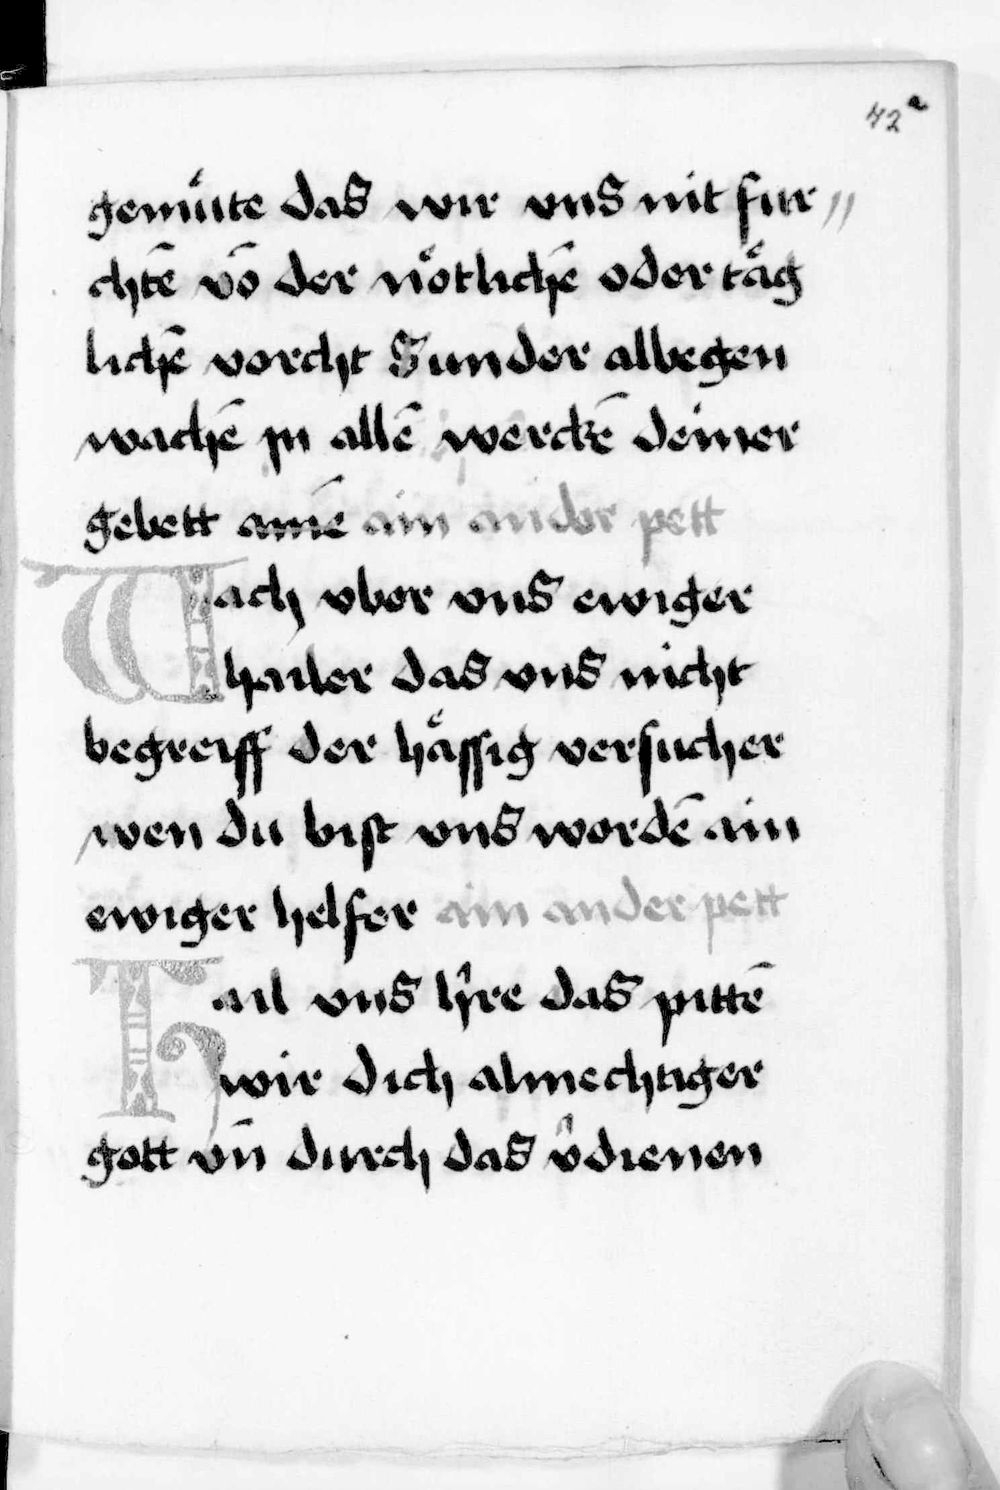 42a
gemuͤte das wir vns nit fur//
chtē vō der noͤtlichē oder taͤg
lichē vorcht Sunder albegen
wachē jn allē werckē deiner
gebett amē ain ander pett
Wach vber vns ewiger
hailer das vns nicht
begreiff der haͤssig versucher
wen du bist vns wordē ain
ewiger helfer ain ander pett
Hail vns h̑re das pittē
wir dich almechtiger
gott vn̄ durch das v̑dienen